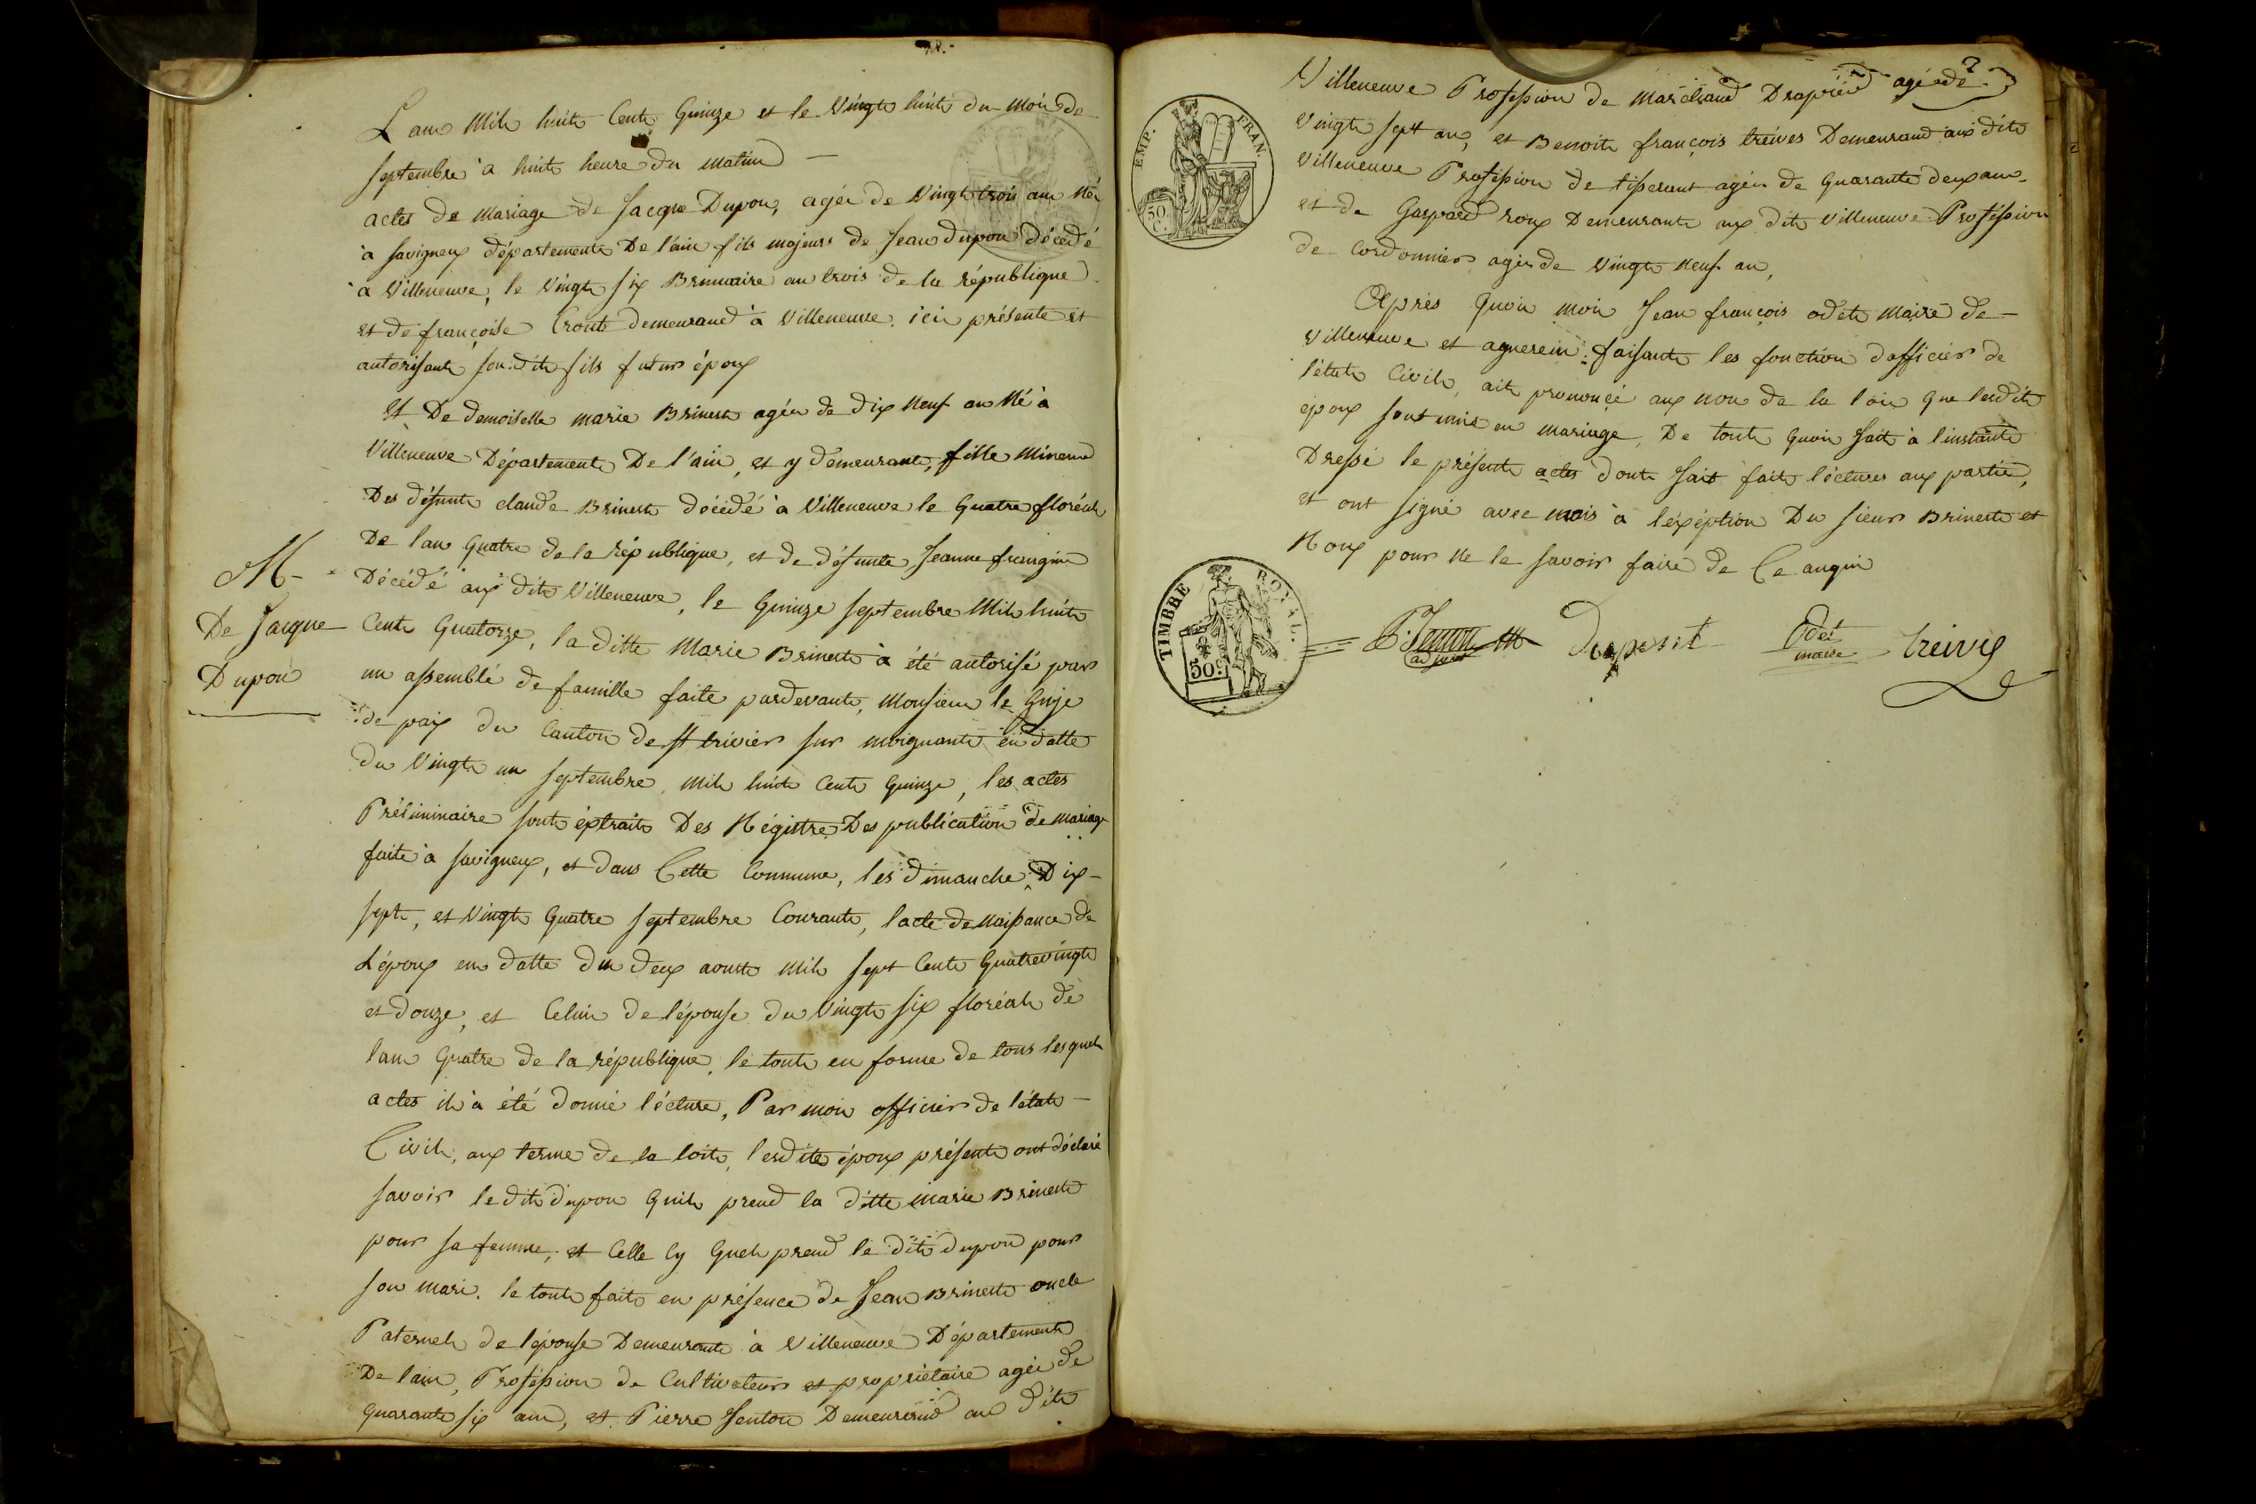 L'an Mile huite Cente Quinze et le Vingte huite du Mois de
septembre à huite heure du matin —
actes de mariage de Jacque Dupon, agée de Vingt trois an Née
à Savigneux départemente De l'ain fils majeurs de Jean dupon décédé
à Villeneuve, le Vingte six Brumaire an trois de la république
et de françoise Cronte demeurand à Villeneuve. ici présente et
autorisante son dite fils futur époux
Et De demoiselle marie Brinest agée de dix Neuf an Né à
Villeneuve Départemente De l'ain, et y demeurante, fille Mineure
Des défunte claude Brineste décédé à Villeneuve le Quatre floréale
De l'an Quatre de la république, et de défunte Jeanne frangin
Décédé aux dite Villeneuve, le Quinze septembre Mile huite
Cente Quatorze, la ditte Marie Brineste à été autorisé par
un assemblé de famille faite pardevante, Monsieur le Juje
de paix du Canton de St trivier sur moignante en datte
du Vingte un septembre, mile huite Cente Quinze, les actes
Préliminaire sonte éxtraite Des Régistre Des publication de mariage
faite à Savigneux, et dans Cette Commune, les dimanche, Dix-
sept, et Vingte Quatre septembre Courante, l'acte de naissance de
L'époux en datte du deux aouste mile sept Cente Quatrevingte
et douze, et Celui de l'épouse du Vingte six floréale de
l'an Quatre de la république, le toute en forme de tous lesquele
actes il à été donné lécture, Par moi officier de l'état
Civile, aux terme de la loite, lesdite époux présente ont déclaré
savoir le dite dupon Quile prend la ditte marie Brineste
pour sa femme, et Celle Cy Quele prend le dite dupon pour
son mari. le toute faite en présence de Jean Brineste oncle
Paternele de l'épouse Demeurante à Villeneuve Départemente
De l'ain, Proféssion de Cultivateur et propriétaire agée de
Quarante six an, et Pierre Jenton Demeurand au dite
M-
De Jacque
Dupon
Villeneuve Proféssion de Marchand Drapier agée de
Vingte sept an, et Benoite françois treives Demeurand aux dite
Villeneuve Proféssion de tisserant agée de Quarante deux an
et de Gaspard roux Demeurante aux dite Villeneuve Proféssion
de Cordonnier agée de Vingte Neuf an,
Après Quoi moi Jean françois odete Maire de
Villeneuve et agnerein faisante les fonction d'officier de
l'étate Civile, aite prononcé aux non de la loix Que lesdite
époux sont unis en mariage, De toute Quoi Jait à l'instante
Dressé le présente actes donte Jait faite lécture aux partie,
et ont signé avec mois à l'éxéption Du sieur Brineste et
Roux pour ne le savoir faire de Ce anquis
EMP. FRAN.
50 C.
TIMBRE ROYAL.
50 c.
P. Jenton
adjoint
Dupont
Odet
maire
treive